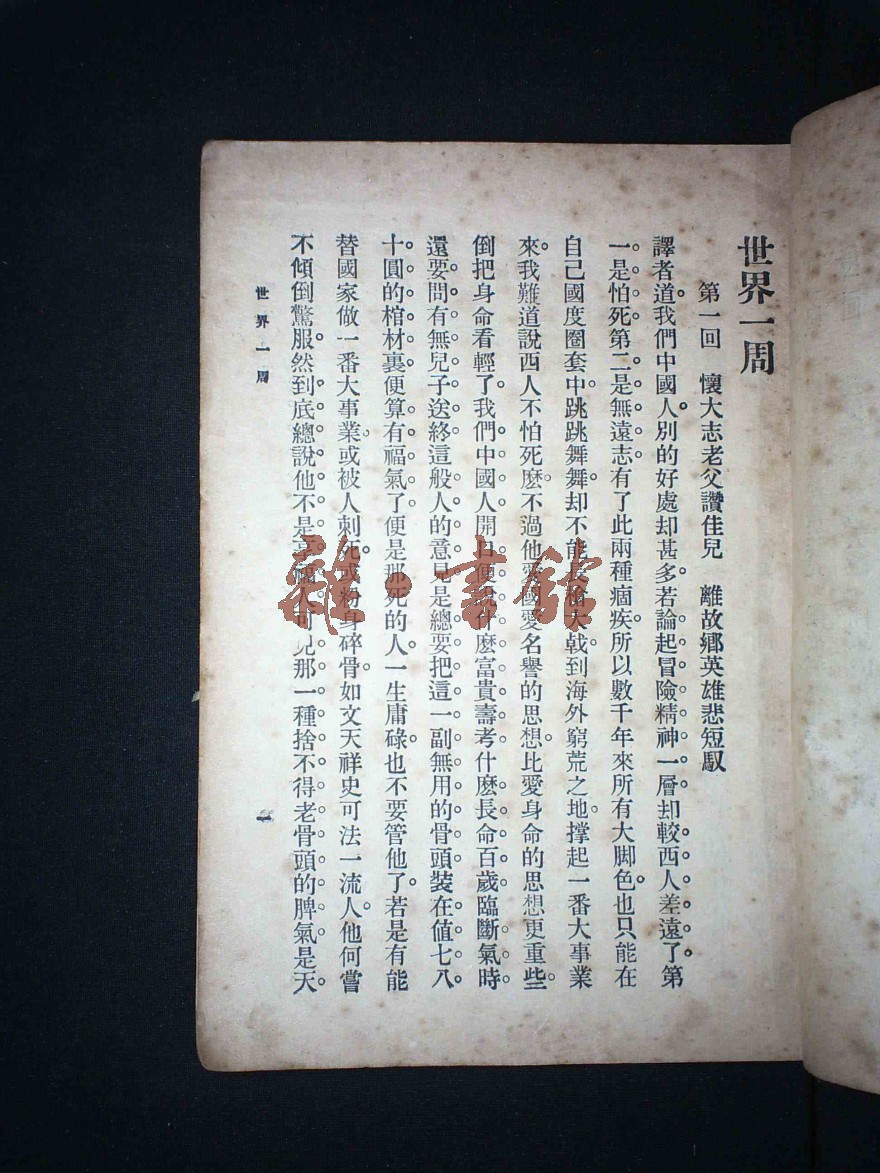 世界一周
第一回　懷大志老父讚佳兒　離故鄉英雄悲短馭
譯者道。我們中國人。別的好處却甚多若論起冒險精神一層却較西人差遠了第
一是怕死第二是無遠志有了此兩種痼疾所以數千年來所有大脚色。也只能在
自己國度圈套中。跳跳舞舞。却不能長槍大戟到海外窮荒之地。撑起一番大事業
來。我難道說西人不怕死麼不過他愛國愛名譽的思想比愛身命的思想更重些。
倒把身命看輕了。我們中國人開口便說什麼富貴壽考什麼長命百歲臨斷氣時
還要問有無兒子送終這般人的意見是總要把這一副無用的骨頭裝在值七八
十圓的棺材裏便算有福氣了便是那死的人一生庸碌也不要管他了。若是有能
替國家做一番大事業。或被人刺死。或粉身碎骨。如文天祥史可法一流人。他何嘗
不傾倒驚服。然到底總說他不是享福人可見那一種捨不得老骨頭的脾氣是天
世界一周
一
雜·書館